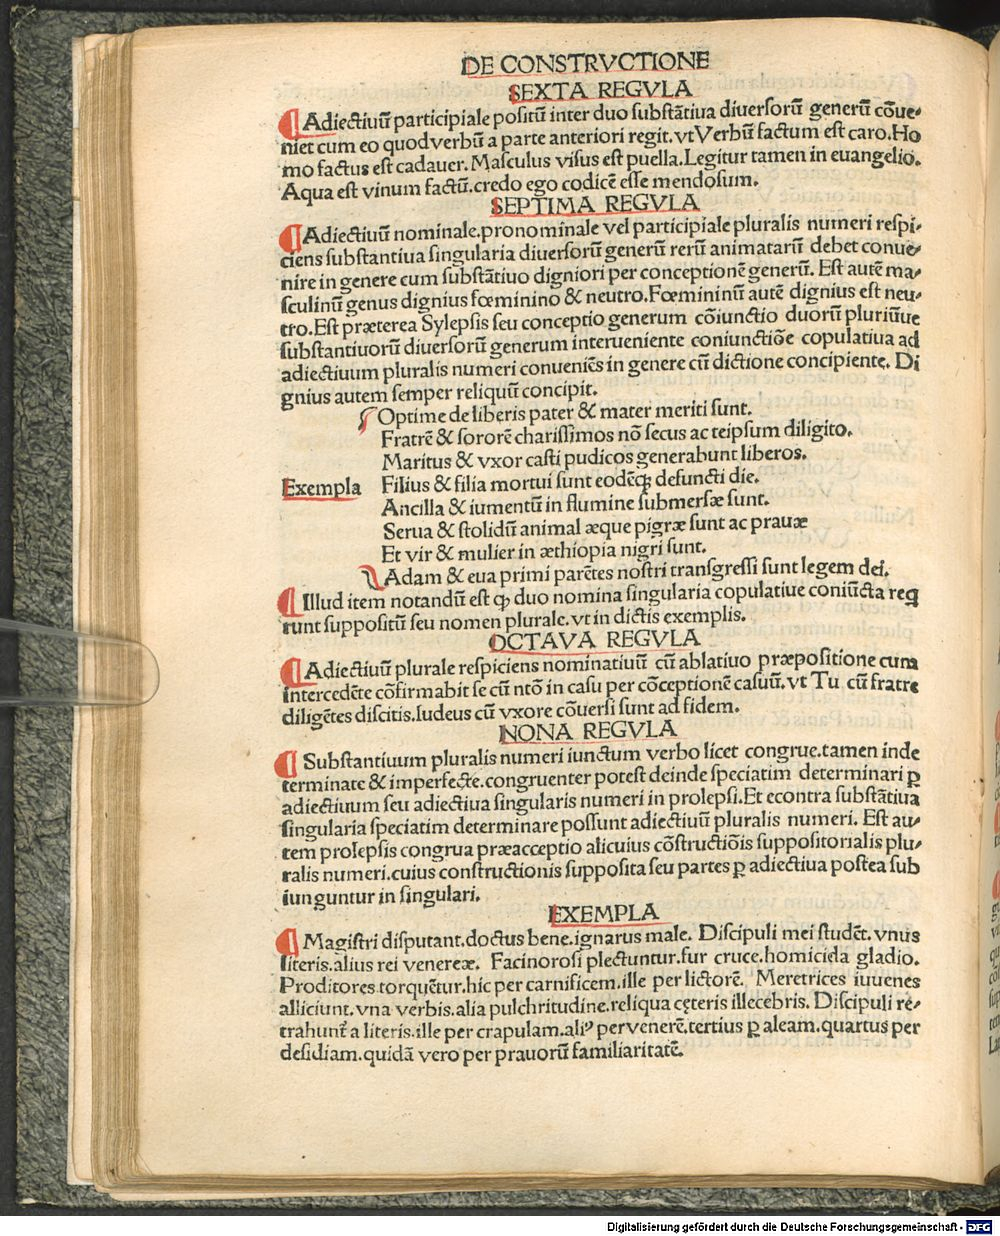 DE CONSTRVCTIONE
SEXTA REGVLA
¶ Adiectiuū participiale positū inter duo substātiua diuersorū generū cōue-
niet cum eo quod verbū a parte anteriori regit. vt Verbū factum est caro. Ho
mo factus est cadauer. Masculus visus est puella. Legitur tamen in euangelio.
Aqua est vinum factū. credo ego codicē esse mendosum.
SEPTIMA REGVLA
¶ Adiectiuū nominale. pronominale vel participiale pluralis numeri respi-
ciens substantiua singularia diuersorū generū rerū animatarū debet conue-
nire in genere cum substātiuo digniori per conceptionē generū. Est autē ma-
sculinū genus dignius fœminino & neutro. Fœmininū autē dignius est neu-
tro. Est præterea Sylepsis seu conceptio generum cōiunctio duorū pluriūue
substantiuorū diuersorū generum interueniente coniunctiōe copulatiua ad
adiectiuum pluralis numeri conueniēs in genere cū dictione concipiente. Di
gnius autem semper reliquū concipit.
Optime de liberis pater & mater meriti sunt.
Fratrē & sororē charissimos nō secus ac teipsum diligito.
Maritus & vxor casti pudicos generabunt liberos.
Exempla Filius & filia mortui sunt eodēqꝫ defuncti die.
Ancilla & iumentū in flumine submersæ sunt.
Serua & stolidū animal æque pigræ sunt ac prauæ
Et vir & mulier in æthiopia nigri sunt.
Adam & eua primi parētes nostri transgressi sunt legem dei.
¶ Illud item notandū est ꝙ duo nomina singularia copulatiue coniūcta req
runt suppositū seu nomen plurale. vt in dictis exemplis.
OCTAVA REGVLA
¶ Adiectiuū plurale respiciens nominatiuū cū ablatiuo præpositione cum
intercedēte cōfirmabit se cū ntō in casu per cōceptionē casuū. vt Tu cū fratre
diligētes discitis. Iudeus cū vxore cōuersi sunt ad fidem.
NONA REGVLA
¶ Substantiuum pluralis numeri iunctum verbo licet congrue. tamen inde
terminate & imperfecte. congruenter potest deinde speciatim determinari ꝑ
adiectiuum seu adiectiua singularis numeri in prolepsi. Et econtra substātiua
singularia speciatim determinare possunt adiectiuū pluralis numeri. Est au-
tem prolepsis congrua præacceptio alicuius cōstructiōis suppositorialis plu-
ralis numeri. cuius constructionis supposita seu partes ꝑ adiectiua postea sub
iunguntur in singulari.
EXEMPLA
¶ Magistri disputant. doctus bene. ignarus male. Discipuli mei studēt. vnus
literis. alius rei venereæ. Facinorosi plectuntur. fur cruce. homicida gladio.
Proditores torquētur. hic per carnificem. ille per lictorē. Meretrices iuuenes
alliciunt. vna verbis. alia pulchritudine. reliqua cęteris illecebris. Discipuli re-
trahunt̄ a literis. ille per crapulam. aliꝰ per venerē. tertius ꝑ aleam. quartus per
desidiam. quidā vero per prauorū familiaritatē.
Digitalisierung gefördert durch die Deutsche Forschungsgemeinschaft - DFG